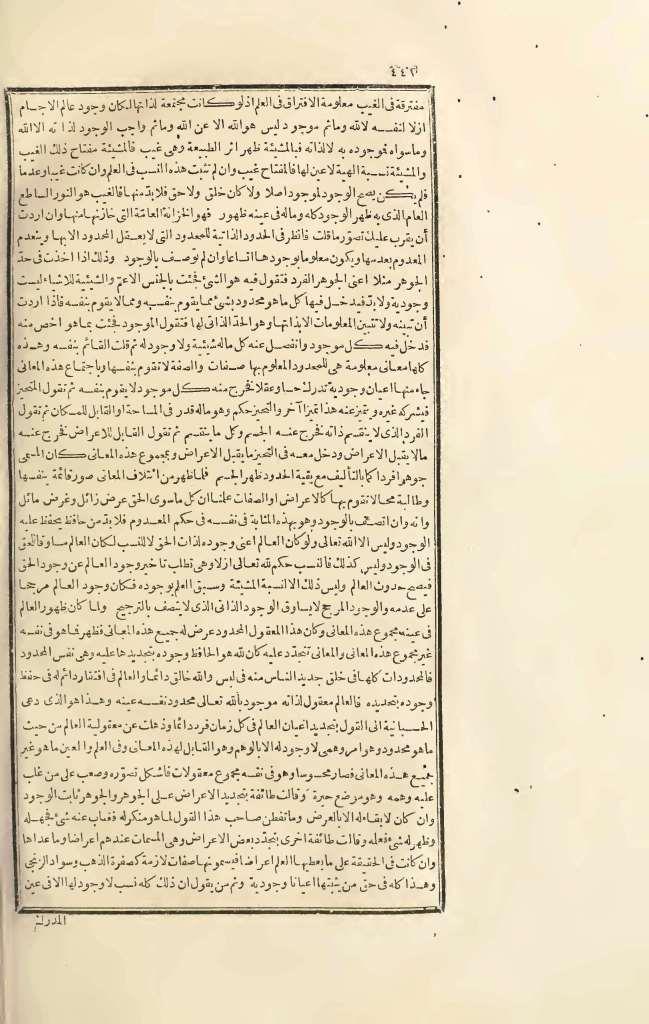 ٤٤٢
مفترقة فى الغيب معلومة الافتراق فى العلم اذ لو كانت مجتمعة لذاتها لكان وجود عالم الاجسام
ازلا لنفسه لا لله وما ثم موجود ليس هو الله الا عن الله وما ثم واجب الوجود لذاته الا الله
وما سواه فموجود به لا لذاته فبالمشيئة ظهر اثر الطبيعة وهى غيب فالمشيئة مفتاح ذلك الغيب
والمشيئة نسبة الهية لا عين لها فالمفتاح غيب وان لم تثبت هذه النسب فى العلم وان كانت غيبا وعدما
فلم يكن يصح الوجود لموجود اصلا ولا كان خلق ولا حق فلا بد منها فالغيب هو النور الساطع
العام الذى به ظهر الوجود كله وما له فى عينه ظهور فهو الخزانة العامة التى خازنها منها وان اردت
أن يقرب عليك تصور ما قلت فانظر فى الحدود الذاتية للمحدود التى لا يعقل المحدود الا بها وينعدم
المعدوم بعدمها ويكون معلوما بوجودها اتساعا وان لم توصف بالوجود وذلك اذا اخذت فى حد
الجوهر مثلا اعنى الجوهر الفرد فتقول فيه هو الشئ فجئت بالجنس الاعم والشيئية للاشياء ليست
وجودية ولا بد فيدخل فيها كل ما هو محدود بشئ مما يقوم بنفسه ومما لا يقوم بنفسه فاذا اردت
أن تبينه ولا تتبين المعلومات الا بذاتها وهو الحد الذاتى لها فتقول الموجود فجئت بما هو اخص منه
فدخل فيه كل موجود وانفصل عنه كل ما له شيئية ولا وجود له ثم قلت القائم بنفسه وهذه
كلها معانى معلومة هى للمحدود المعلوم بها صفات والصفة لا تقوم بنفسها وباجتماع هذه المعانى
جاء منها اعيان وجودية تدرك حسا وعقلا فخرج منه كل موجود لا يقوم بنفسه ثم تقول المتحيز
فيشركه غيره ويتميز عنه هذا تميزا آخر والتحيز حكم وهو ما له قدر فى المساحة او القابل للمكان ثم تقول
الفرد الذى لا ينقسم ذاته فخرج عنه الجسم وكل ما ينقسم ثم تقول القابل للاعراض فخرج عنه
ما لا يقبل الاعراض ودخل معه فى التحيز ما يقبل الاعراض وبمجموع هذه المعانى كان المسمى
جوهرا فردا كما بالتأليف مع بقية الحدود ظهر الجسم فلما ظهر من ائتلاف المعانى صور قائمة بنفسها
وطالبة محالا تقوم بها كالاعراض او الصفات علمنا ان كل ما سوى الحق عرض زائل وغرض مائل
وانه وان اتصف بالوجود وهو بهذه المثابة فى نفسه فى حكم المعدوم فلا بد من حافظ يحفظ عليه
الوجود وليس الا الله تعالى ولو كان العالم اعنى وجوده لذات الحق لا للنسب لكان العالم مساوقا للحق
فى الوجود وليس كذلك فالنسب حكم لله تعالى ازلا وهى تطلب تأخير وجود العالم عن وجود الحق
فيصح حدوث العالم وليس ذلك الا نسبة المشيئة وسبق العلم بوجوده فكان وجود العالم مرجحا
على عدمه والوجود المرجح لا يساوق الوجود الذاتى الذى لا يتصف بالترجيح ولما كان ظهور العالم
فى عينه مجموع هذه المعانى وكان هذا المعقول المحدود عرض له جميع هذه المعانى فظهر فما هو فى نفسه
غير مجموع هذه المعانى والمعانى تتجدد عليه كان لله هو الحافظ وجوده بتجديدها عليه وهى نفس المحدود
فالمحدودات كلها فى خلق جديد الناس منه فى لبس والله خالق دائما والعالم فى افتقار دائم له فى حفظ
وجوده بتجديده فالعالم معقول لذاته موجود بالله تعالى محدود نفسه عينه وهذا هو الذى دعى
الحسبانية الى القول بتجديد اعيان العالم فى كل زمان فرد دائما وذهلت عن معقولية العالم من حيث
ما هو محدود وهو امر وهمى لا وجود له الا بالوهم وهو القابل لهذه المعانى وفى العلم والعين ما هو غير
جميع هذه المعانى فصار محسوسا وهو فى نفسه مجموع معقولات فاشكل تصوره وصعب على من غلب
عليه وهمه وهو موضع حيرة وقالت طائفة بتجديد الاعراض على الجوهر والجوهر ثابت الوجود
وان كان لا بقاء له الا بالعرض وما تفطن صاحب هذا القول لما هو منكر له فغاب عنه شئ فجهله
وظهر له شئ فعلمه وقالت طائفة اخرى بتجدد بعض الاعراض وهى المسمات عندهم اعراضا وما عداها
وان كانت فى الحقيقة على ما يعطيها العلم اعراضا فيسمونها صفات لازمة كصفرة الذهب وسواد الزنجى
وهذا كله فى حق من يثبتها اعيانا وجودية وثم من يقول ان ذلك كله نسب لا وجود لها الا فى عين
المدرك